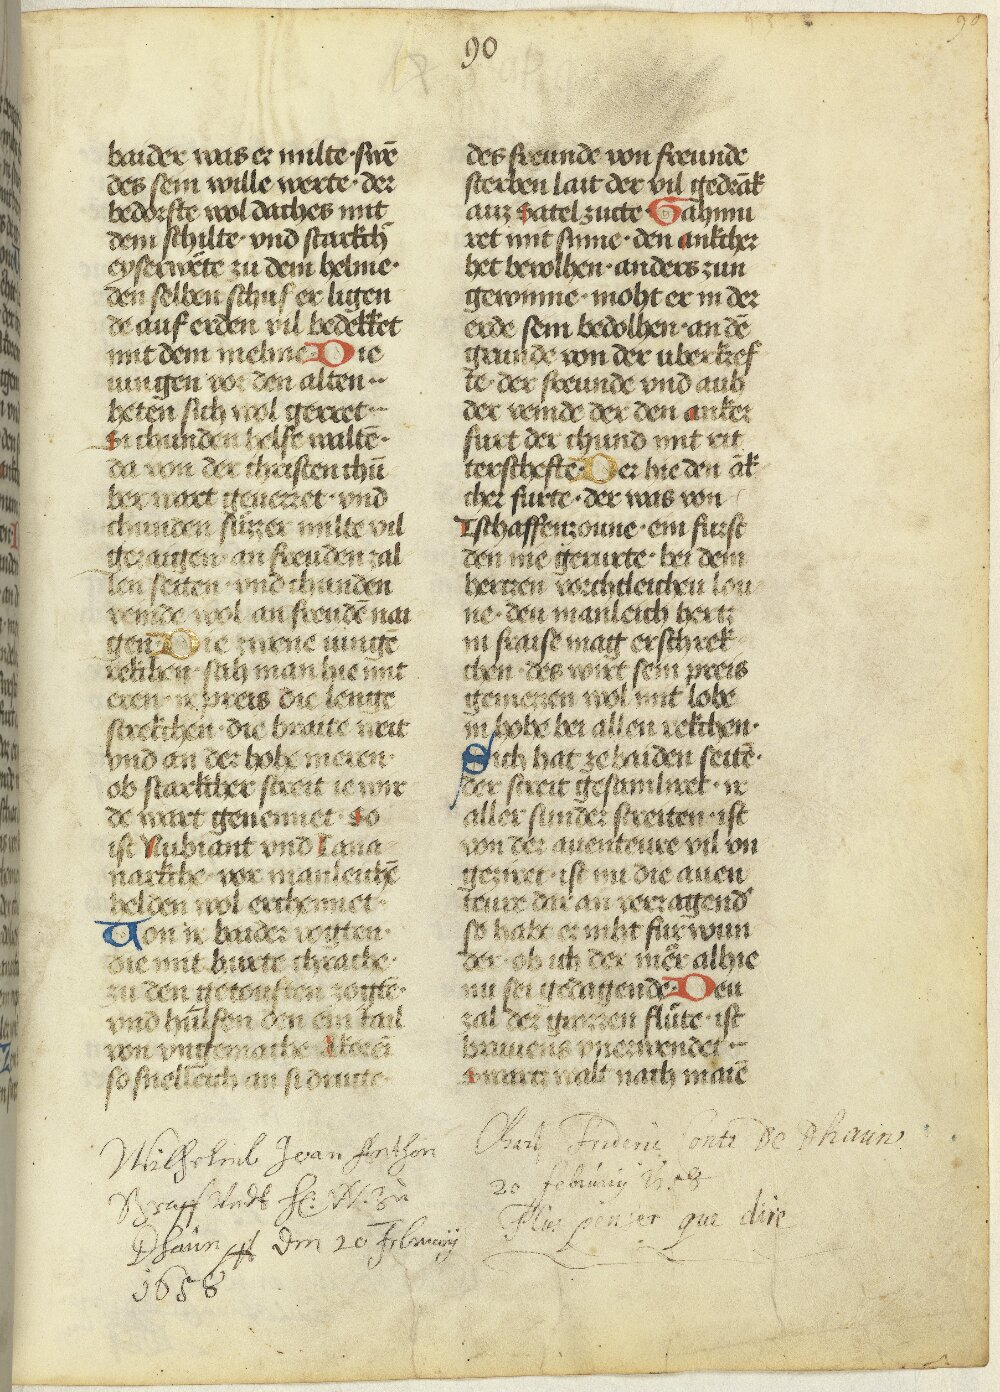 90
90
baider was er milte · swē
des sein wille werte · der
bedorfte wol daches mit
dem schilte · vnd starkch
eyserwēte zu dem helme ·
den selben schuf er ligen
de auf erden vil bedekket
mit dem melme · Die
iungen vor den alten ·
heten sich wol gerret ·
si chunden helfe waltē ·
da von der christen chū
ber wart geuerret · vnd
chunden sürzer milte vil
gezaigen · an freuden zal
len seiten · vnd chunden
veinde wol an freudē nai
gen · Die zwene iungē
rekhen · sah man hie mit
eren · ir preis die lenge
strekchen · die braite weit
vnd an der hohe meren ·
ob starkher streit ie wir
de wart genennet · so
ist Nubiant vnd Lana
narkche · vor manleichē
helden wol erchennet ·
Von ir baider vogten ·
die mit hurte chrache ·
zu den getouften zogtē ·
vnd hülfen den ein tail
von vngemache Alocei
so snelleich an si drute ·
des freunde von freunde
sterben lait der vil gedrāk
auz satel zucte · Gahmu
ret mit sinne · den ankcher
het bevolhen · anders zun
gewinne · moht er in der
erde sein bedolhen · an dē
grunde von der uberkref
te · der freunde vnd auh
der veinde der den anker
furt der chund mit rit
terschefte · Der hie den āk
cher furte · der was von
Tschaffenzoune · ein furst
den nie gerurte · bei dem
hertzen vorchtleichen lou
ne · den manleich hertz
in fraise mag erschrek
chen · des wirt sein preis
gemezzen wol mit lobe
in hohe bei allen rekchen ·
Sich hat ze baiden seitē ·
der streit gesamliret · ir
aller sunder streiten · ist
von der auenteure vil vn
geziret · ist nu die auen
teure dar an verzagend
so habt er niht für wun
der · ob ich der mēr alhie
nu sei gedagende · Deu
zal der grozzen flüte · ist
brauens vnerwendet ·
swartz walt nach maiē
Wilhelmb Jean Anthon
Graff Undt H: W: zu
Dhaun den 20 Februarij
1658
Charl Frideric Conte De Dhaun
20 februarij 1658
Plus penser que dire